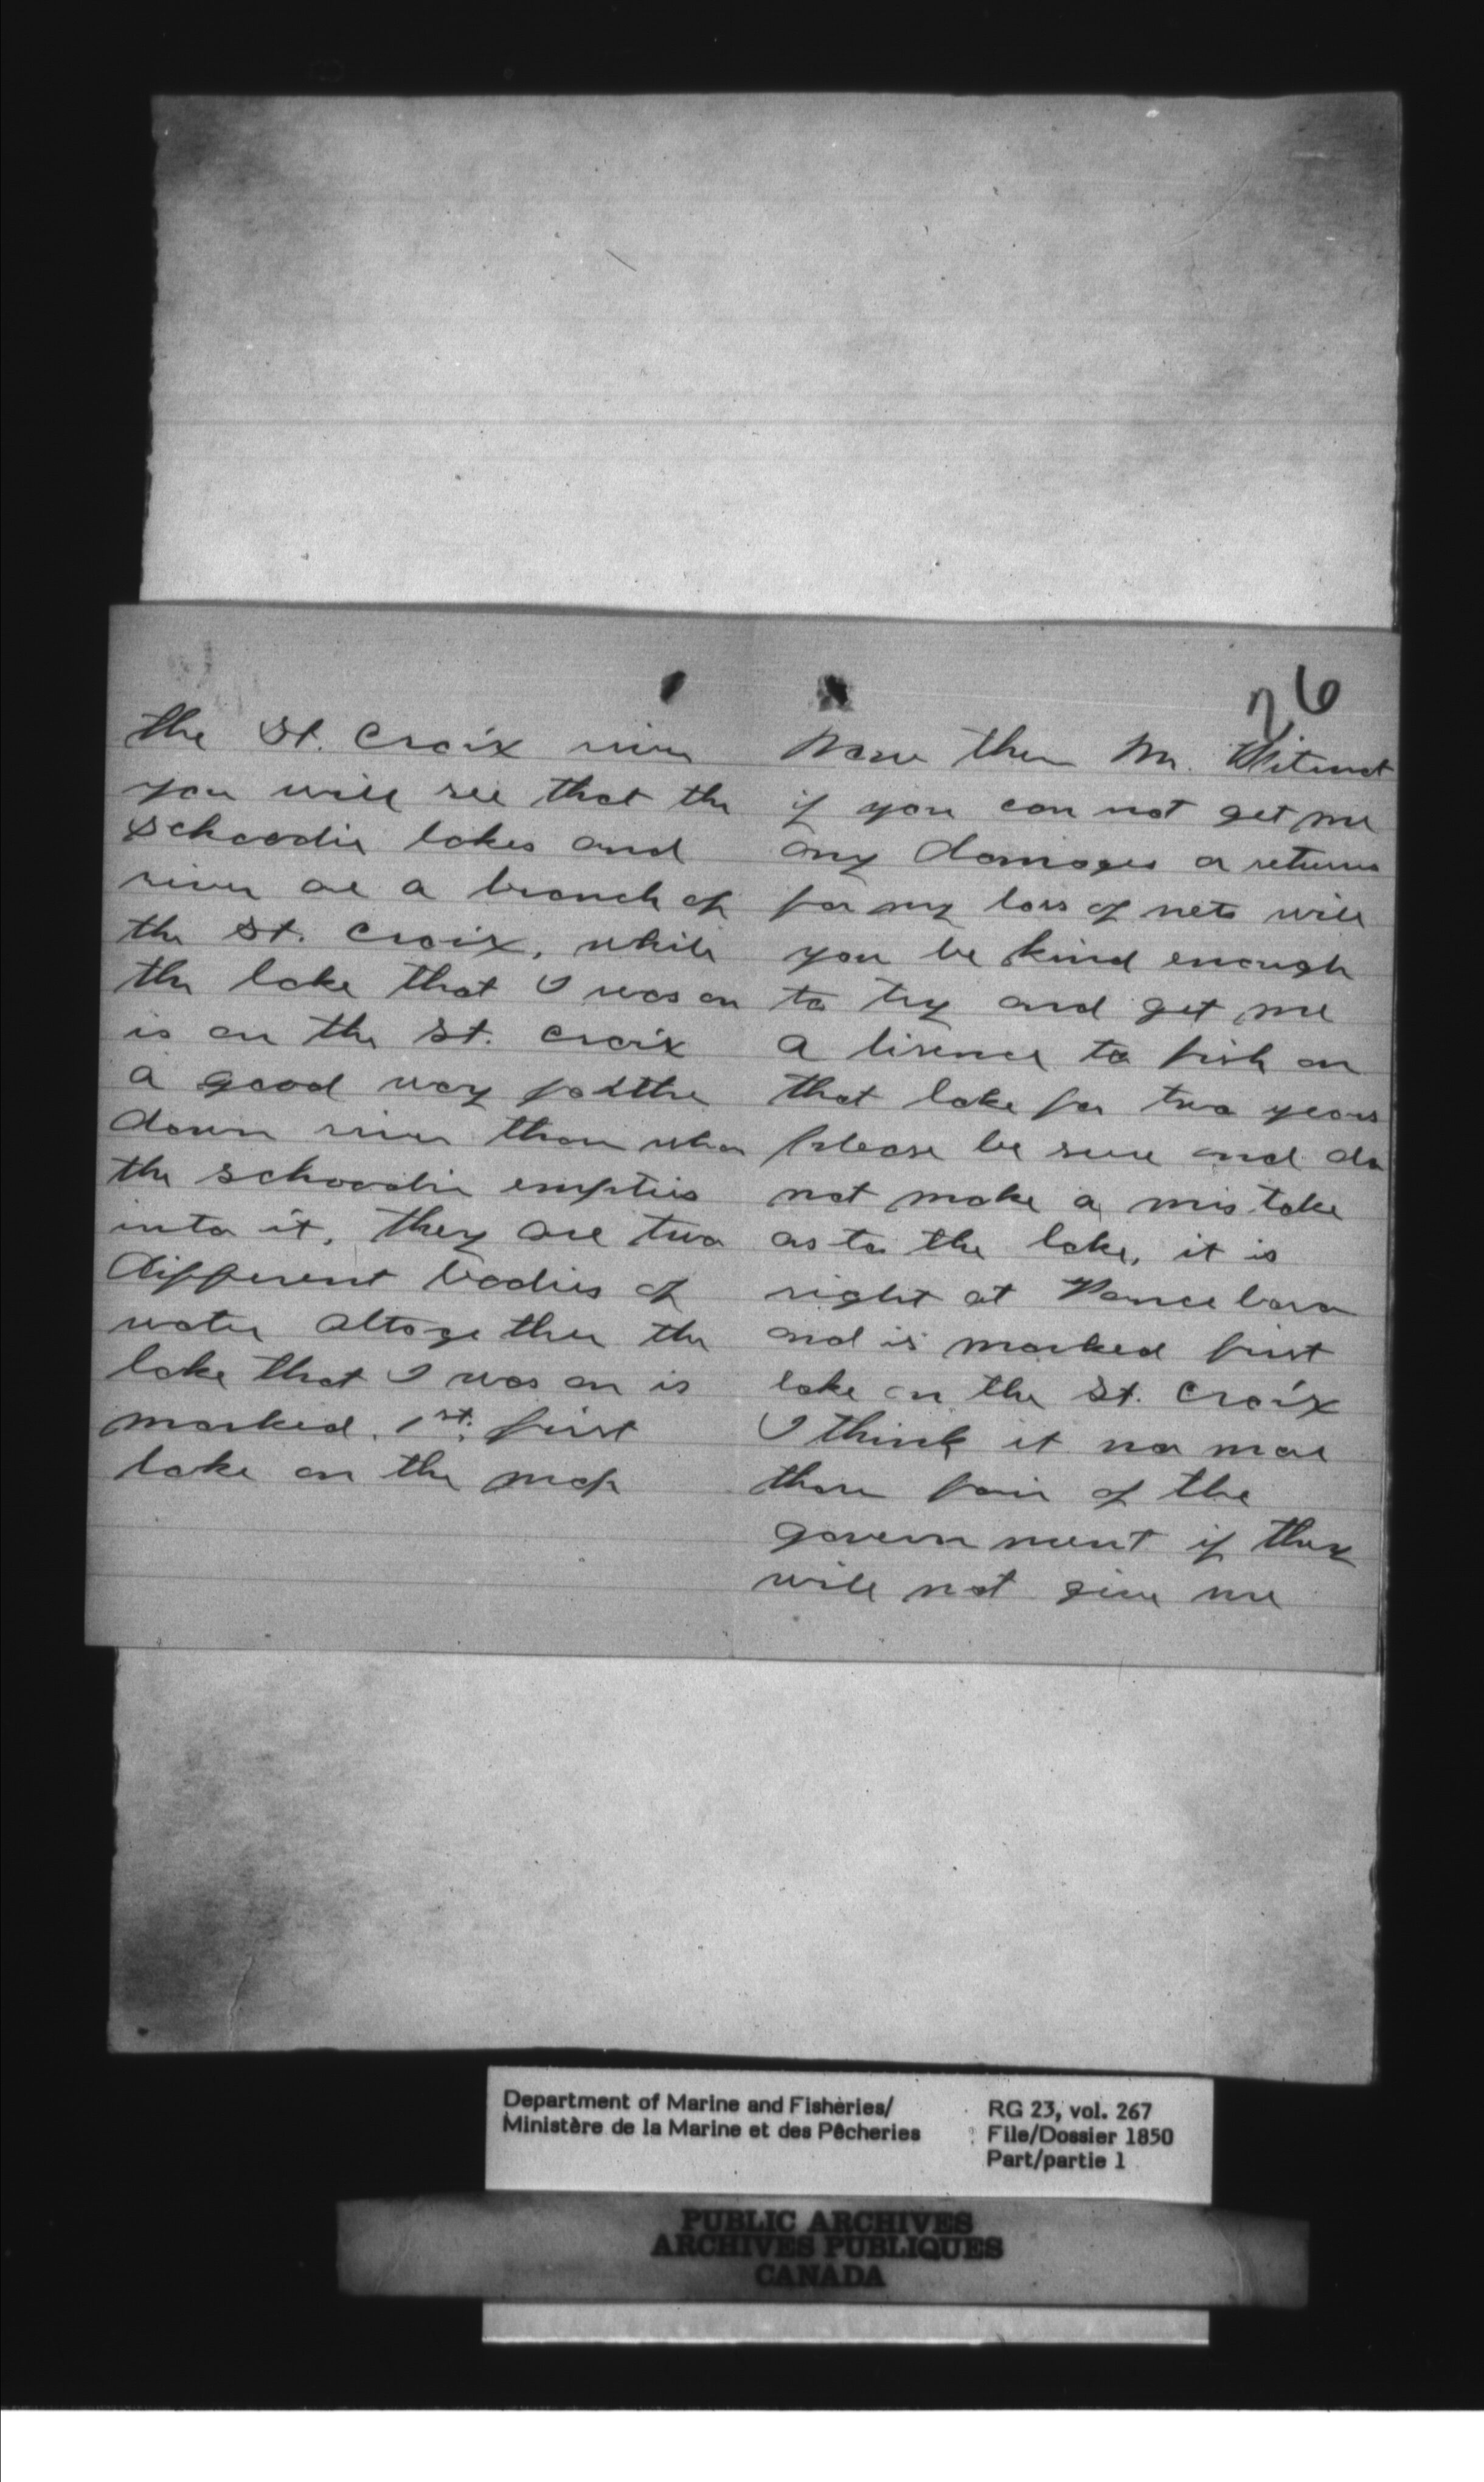 the St. Croix river
you will see that the
schoodic lakes and
river are a branch of
the St. Croix, while
the lake that I was on
is on the St. Croix
a good way farther
down river than where
the schoodic empties
into it. they are two
different bodies of
water altogether the
lake that I was on is
marked. 1st. first
lake on the map
26
Now then Mr.
if you can not get me
any damages or returns
for my loss of nets will
you be kind enough
to try and get me
a lisence to fish on
that lake for two years
please be sure and do
not make a mistake
as to the lake, it is
right at Vanceboro
and is marked first
lake on the St. Croix
I think it no more
than fair of the
government if they
will not give me
Department of Marine and Fisheries/
Ministère de la Marine et des Pêcheries
RG 23, vol. 267
File/Dossier 1850
Part/partie 1
PUBLIC ARCHIVES
ARCHIVES PUBLIQUES
CANADA